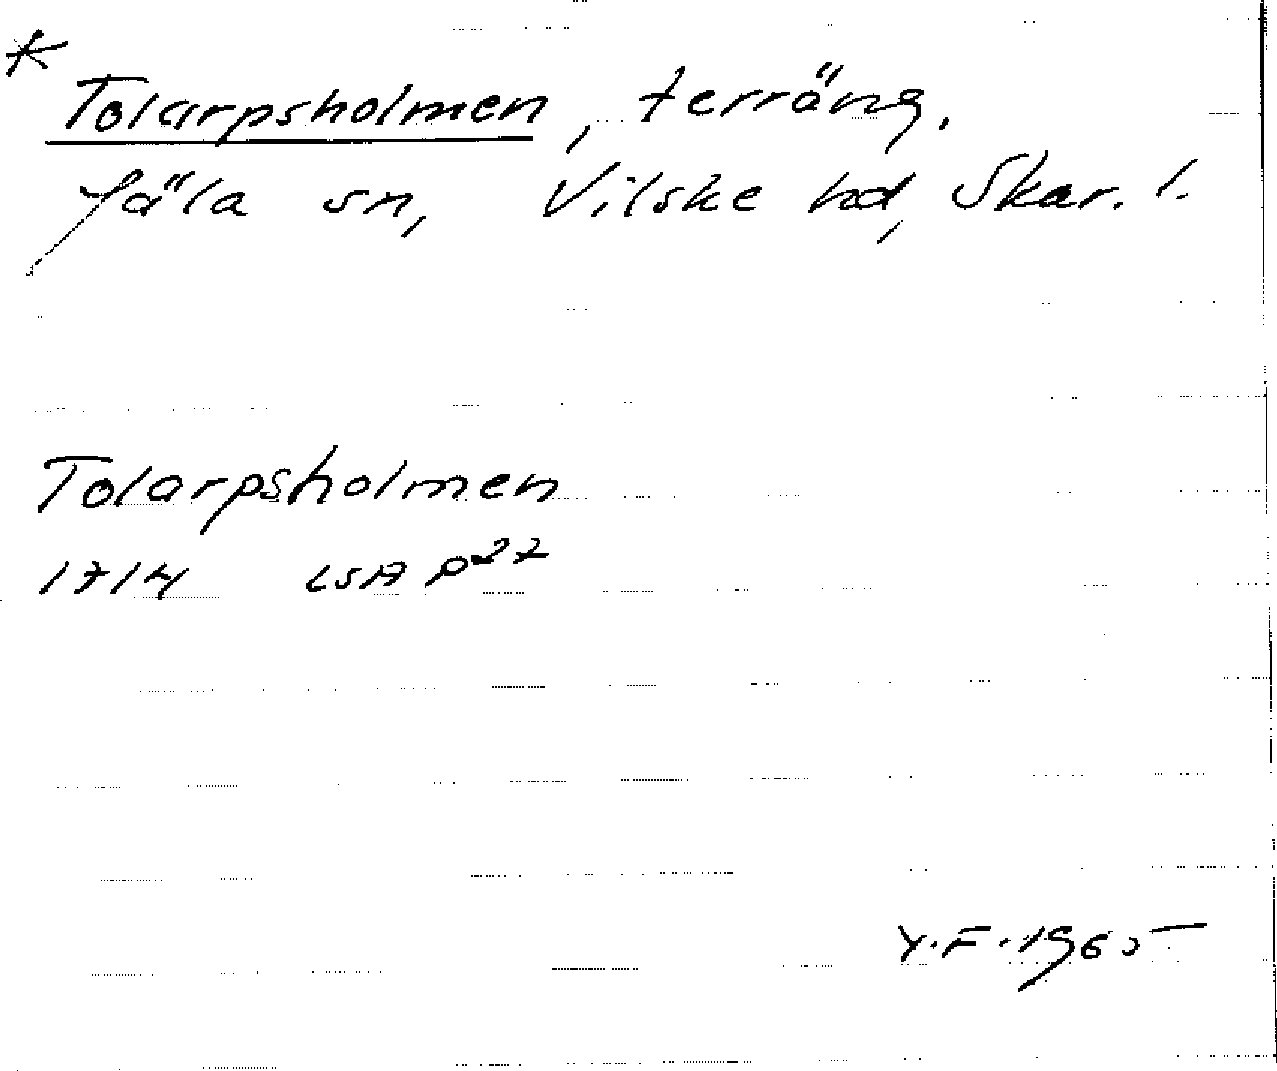 * Tolarpsholmen, terräng.
Jäla sn, Vilske hd, Skar. l.
Tolarpsholmen
1714 LSA P27
Y.F. 1965